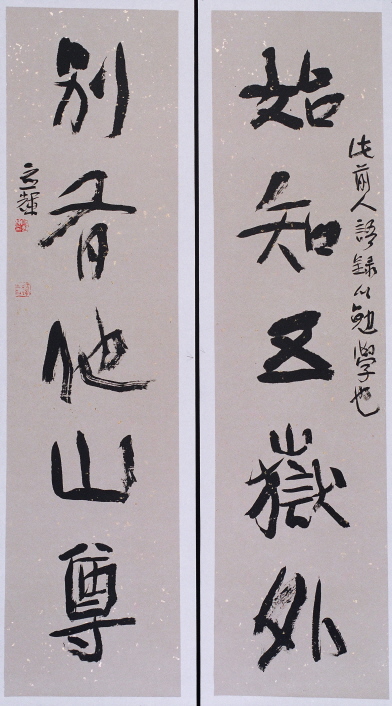 始知五嶽外
此前人語錄以勉學也
別有他山尊